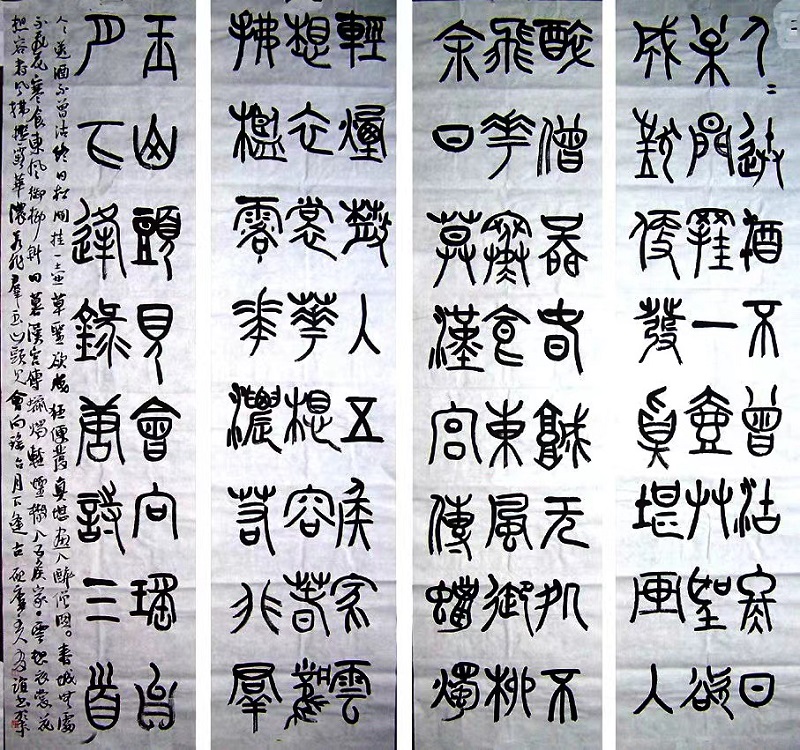 人〻送酒不曾沽終日
松閒挂一壺艸聖欲
成狂便發真堪画人
醉僧啚春城无処不
飛華寒食東風御柳
余日莫漢宮傳蠟燭
輕煙散人五侯家雲
想衣裳華想容春風
拂檻露華濃若非群
玉山頭見會向瑤台
月下逢錄唐詩三首
人人送酒不曾沽終日松間挂一壺草聖欲成狂便發真堪画人醉僧圖春城無處
不飛花寒食東風御柳斜日暮漢宮傳蠟燭輕煙散入五侯家雲想衣裳花
想容春風拂檻露華濃若非群玉山頭見會向瑤台月下逢